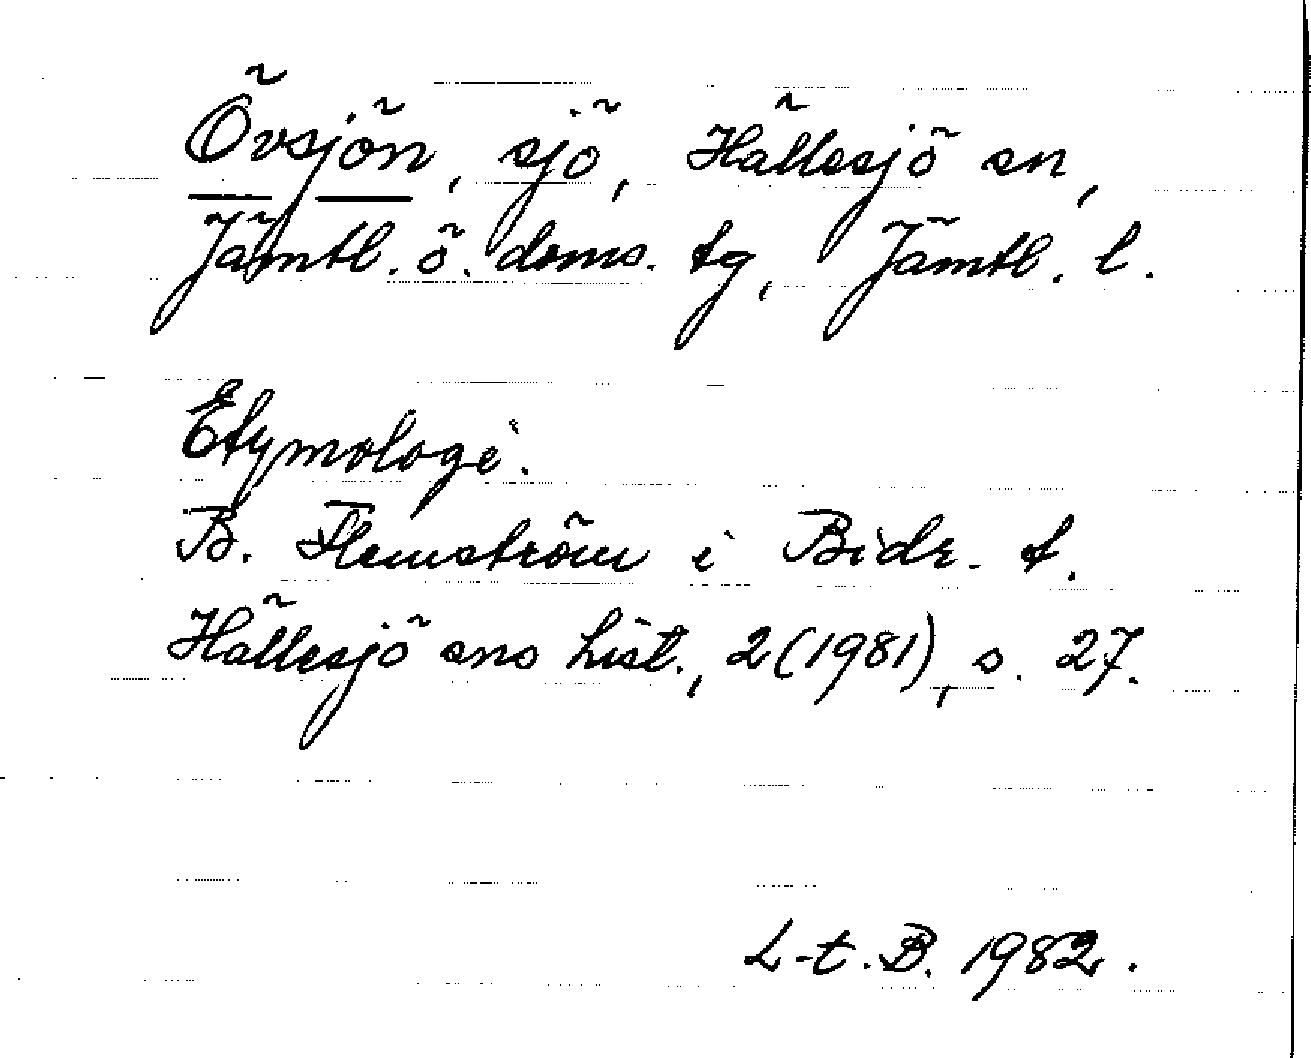 Övsjön, sjö, Hällesjö sn,
Jämtl. ö. doms. tg, Jämtl. l.
Etymologi.
B. Flemström i Bidr. t.
Hällesjö sns hist., 2 (1981), s. 27.
L-t. B. 1982.